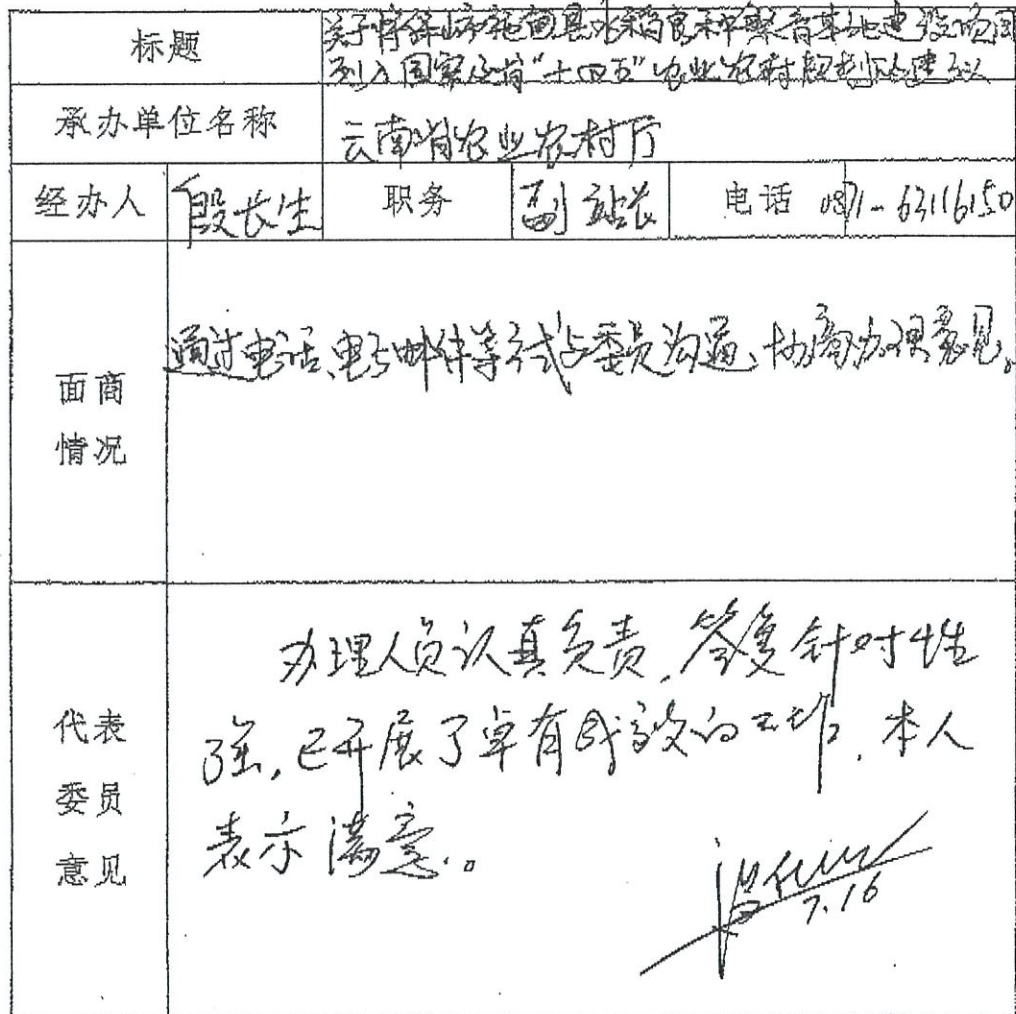 标题
关于将保山市施甸县水稻良种繁育基地建设项目
列入国家及省“十四五”农业农村规划的建议
承办单位名称 云南省农业农村厅
经办人 段长生 职务 副站长 电话 0871-63116150
面商
情况
通过电话、电子邮件等方式与委员沟通、协商办理意见。
代表
委员
意见
办理人员认真负责,答复针对性
强,已开展了卓有成效的工作,本人
表示满意。
7.16